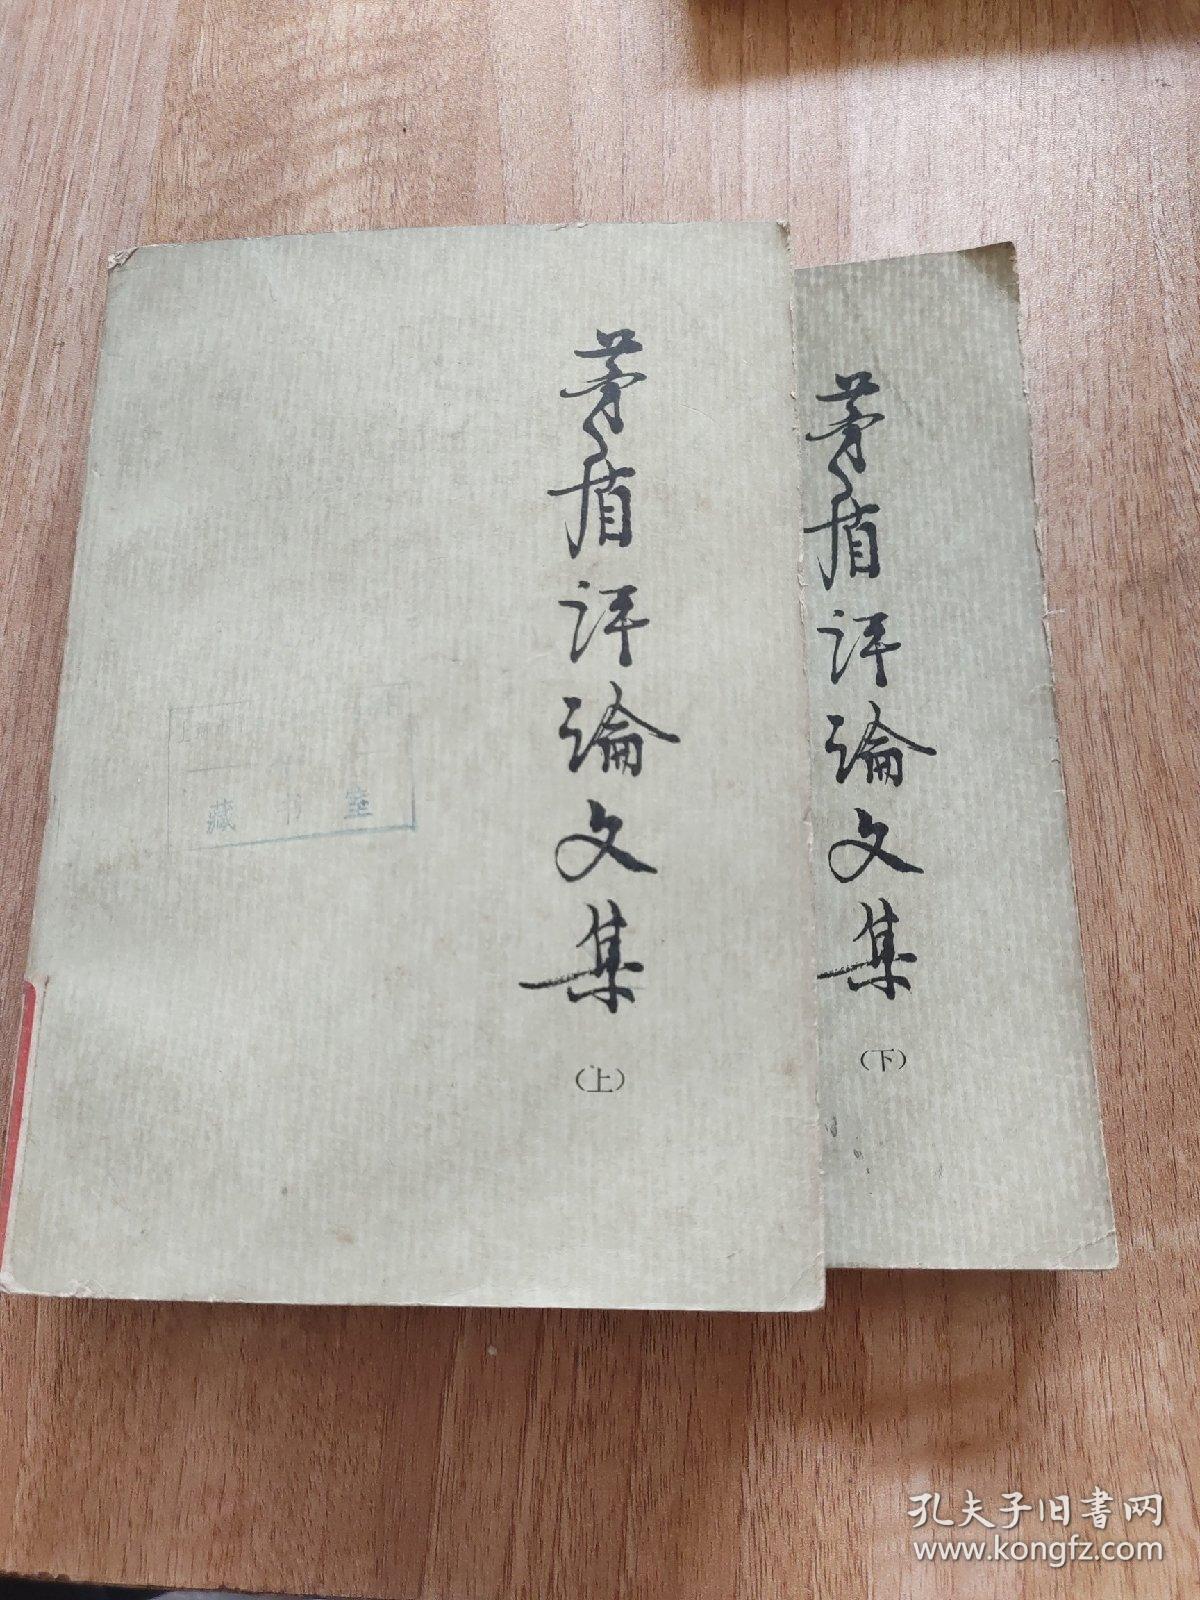 茅盾评论文集
(上)
藏书室
茅盾评论文集
(下)
孔夫子旧书网
www.kongfz.com